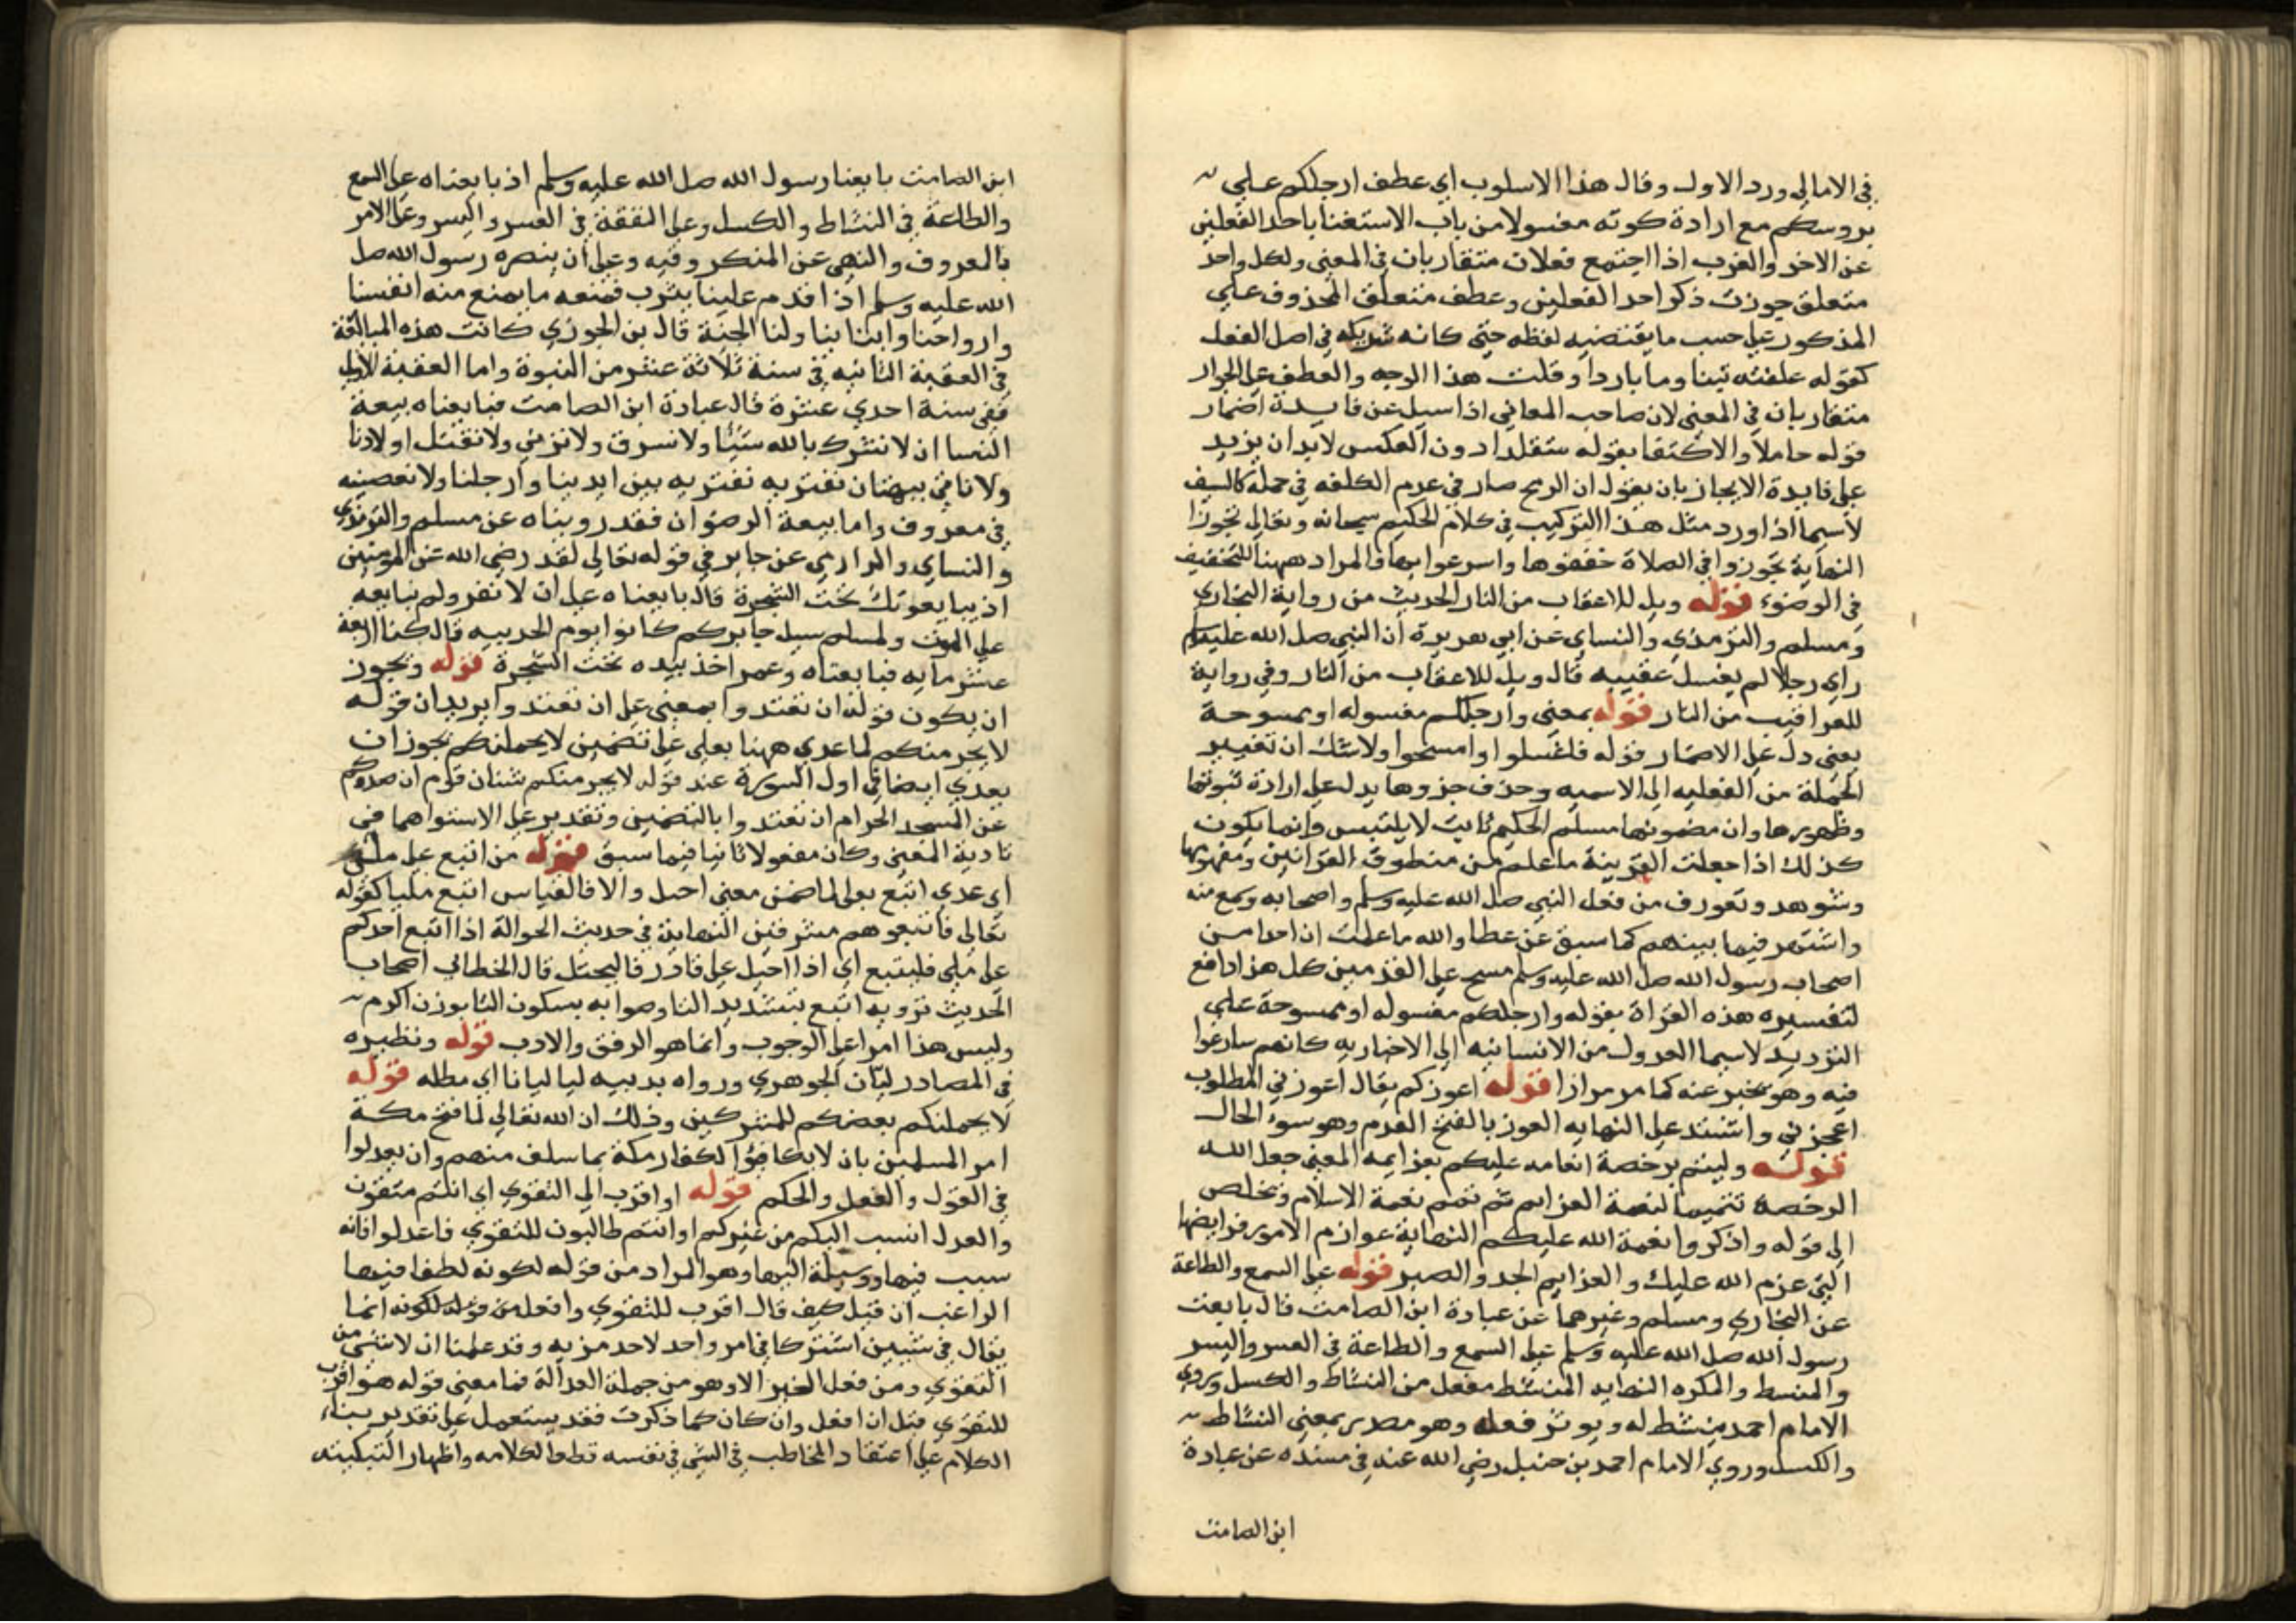 في الامالي ورد الاول وقال هذا الاسلوب اي عطف ارجلكم علي
بروسكم مع ارادة كونه مغسولا من باب الاستغنا باحد الفعلين
عن الاخر والعرب اذا اجتمع فعلان متقاربان في المعني ولكل واحد
متعلق جوزت ذكر احد الفعلين وعطف متعلق المحذوف علي
المذكور علي حسب ما يقتضيه لفظه حتي كانه شريكه في اصل الفعل
كقوله علفته تبنا وما باردا وقلت هذا الوجه والعطف علي الجوار
متقاربان في المعني لان صاحب المعاني اذا سيل عن فايدة اضمار
قوله حاملا والاكتفا بقوله متقلدا دون العكس لابد ان يزيد
علي فايدة الايجاز بان يقول ان الرمح صار في عدم الكلفه في حمله كالسيف
لاسيما اذا ورد مثل هذا التركيب في كلام الحكيم سبحانه وتعالي تجوزا
النهاية تجوزوا في الصلاة خففوها واسرعوا بها والمراد ههنا التخفيف
في الوضوء قوله ويل للاعقاب من النار الحديث من رواية البخاري
ومسلم والترمذي والنساي عن ابي هريرة ان النبي صل الله عليه وسلم
راي رجلا لم يغسل عقبيه قال ويل للاعقاب من النار وفي رواية
للعراقيب من النار قوله بمعني وارجلكم مغسوله او ممسوحة
يعني دل علي الاضمار قوله فاغسلوا وامسحوا ولاشك ان تغيير
الجملة من الفعليه الي الاسميه وحذف جزوها يدل علي ارادة ثبوتها
وظهورها وان مضمونها مسلم الحكم ثابت لا يلتبس وانما يكون
كذلك اذا جعلت القرينة ما علم من منطوق القرانين ومفهومها
وشوهد وتعورف من فعل النبي صل الله عليه وسلم واصحابه وسمع منه
واشتهر فيما بينهم كما سبق عن عطا والله ما علمت ان احدا من
اصحاب رسول الله صل الله عليه وسلم مسح علي القدمين كل هذا دافع
لتفسيره هذه القراة بقوله وارجلكم مغسوله او ممسوحة علي
الترديد لاسيما العدول من الانسانيه الي الاخباريه كانهم سارعوا
فيه وهو مخبر عنه كما مر مرارا قوله اعوزكم يقال اعوزني المطلوب
اعجزني واشتد علي النهايه العوز بالفتح العدم وهو سوء الحال
قوله وليتم برخصة انعامه عليكم بعزايمه المعني جعل الله
الرخصة تتميما لنعمة العزايم ثم تمم نعمة الاسلام وتخلص
الي قوله واذكروا نعمة الله عليكم النهاية عوازم الامور فرايضها
التي عزم الله عليك والعزايم الجد والصبر قوله علي السمع والطاعة
عن البخاري ومسلم وغيرهما عن عبادة ابن الصامت قال بايعت
رسول الله صل الله عليه وسلم علي السمع والطاعة في العسر واليسر
والمنسط والمكره النهايه المنشط مفعل من النشاط والكسل وروي
الامام احمد ينشط له ويوثر فعله وهو مصدر بمعني النشاط
والكسل وروي الامام احمد بن حنبل رضي الله عنه في مسنده عن عبادة
ابن الصامت
ابن الصامت بايعنا رسول الله صل الله عليه وسلم اذ بايعناه علي السمع
والطاعة في النشاط والكسل وعلي النفقة في العسر واليسر وعلي الامر
بالمعروف والنهي عن المنكر وفيه وعلي ان ينصره رسول الله صل
الله عليه وسلم اذا قدم علينا يثرب فنمنعه ما يمنع منه انفسنا
وارواحنا وابنابنا ولنا الجنة قال بن الجوزي كانت هذه المبالغة
في العقبة الثانيه في سنة ثلاثة عشر من النبوة واما العقبة الاولي
ففي سنة احدي عشرة قال عبادة ابن الصامت فبايعناه بيعة
النسا ان لا نشرك بالله شيئا ولا نسرق ولا نزني ولا نقتل اولادنا
ولا ناتي ببهتان نفتريه نفتريه بين ايدينا وارجلنا ولا نعصينه
في معروف واما بيعة الرضوان فقد رويناه عن مسلم والترمذي
والنساي والدارمي عن جابر في قوله تعالي لقد رضي الله عن المومنين
اذ يبايعونك تحت الشجرة قال بايعناه علي ان لا نفر ولم نبايعه
علي الموت ولمسلم سيل جابر كم كانوا يوم الحديبيه قال كنا اربعة
عشر مايه فبايعناه وعمر اخذ بيده تحت الشجرة قوله ويجوز
ان يكون قوله ان تعتدوا بمعني علي ان تعتدوا يريد ان قوله
لا يجرمنكم لما عدي ههنا بعلي علي تضمين لا يحملنكم يجوز ان
يعدي ايضا في اول السورة عند قوله لا يجرمنكم شنان قوم ان صدوكم
عن المسجد الحرام ان تعتدوا بالتضمين وتقدير علي لاستواهما في
تادية المعني وكان مفعولا ثانيا فيما سبق قوله من اتبع علي ملي
اي عدي اتبع بعلي لما ضمن معني احيل والا فالقياس اتبع مليا كقوله
تعالي فاتبعوهم مشرقين النهاية في حديث الحوالة اذا اتبع احدكم
علي ملي فليتبع اي اذا احيل علي قادر فاليحتل قال الخطابي اصحاب
الحديث تروبه اتبع بتشديد التا وصوابه بسكون التا بوزن اكرم
وليس هذا امرا علي الوجوب وانما هو الرفق والادب قوله ونظيره
في المصادر ليان الجوهري ورواه بدبيه ليا ليانا اي مطله قوله
لا يحملنكم بعضكم للمشركين وذلك ان الله تعالي لما فتح مكة
امر المسلمين بان لا يكافؤا الكفار مكة بما سلف منهم وان يعدلوا
في القول والفعل والحكم قوله او اقرب الي التقوي اي انتم متقون
والعدل انسب اليكم من غيركم او انتم طالبون للتقوي فاعدلوا فانه
سبب فيها ووسيلة اليها وهو المراد من قوله لكونه لطفا فيها
الراغب ان قيل كيف قال اقرب للتقوي وافعل من قوله لكونه انما
يقال في شيين اشتركا في امر واحد لاحد مزيه وقد علمنا ان لا شي من
التقوي ومن فعل الخير الا وهو من جملة العدالة فما معني قوله هو اقرب
للتقوي قيل ان افعل وان كان كما ذكرت فقد يستعمل علي تقدير بناء
الكلام علي اعتقاد المخاطب في الشي في نفسه قطعا لكلامه واظهارا لتبكيته